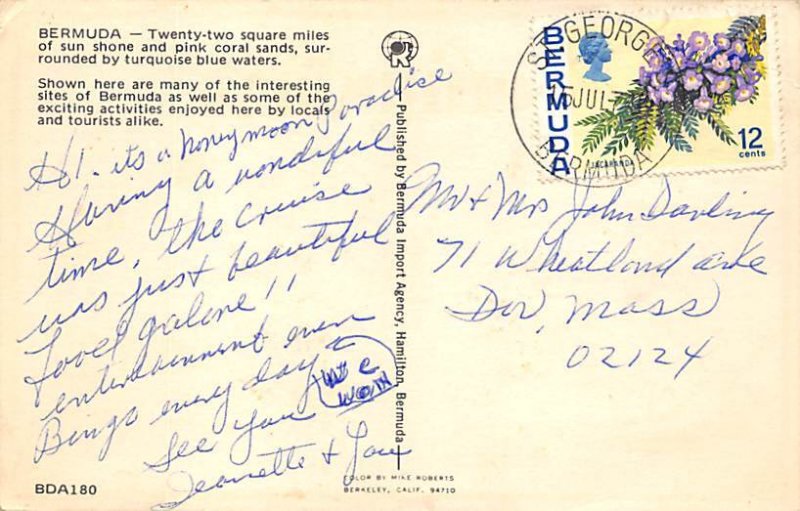 BERMUDA — Twenty-two square miles
of sun shone and pink coral sands, sur-
rounded by turquoise blue waters.
Shown here are many of the interesting
sites of Bermuda as well as some of the
exciting activities enjoyed here by locals
and tourists alike.
Hi - its a honeymoon Paradise
Having a wonderful
time, the cruise
was just beautiful
Food galore!!
entertainment even
Bingo every day &
we
won
See you
Jeanette & Lou
BDA180
Published by Bermuda Import Agency, Hamilton, Bermuda
COLOR BY MIKE ROBERTS
BERKELEY, CALIF. 94710
ST. GEORGE
15 JUL
BERMUDA
BERMUDA
JACARANDA
12
cents
Mr & Mrs John Darling
71 Wheatland ave
Dor, Mass
02124